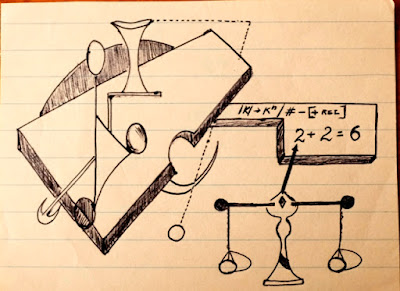 |K| → Kⁿ / # – [+ REL]
2 + 2 = 6